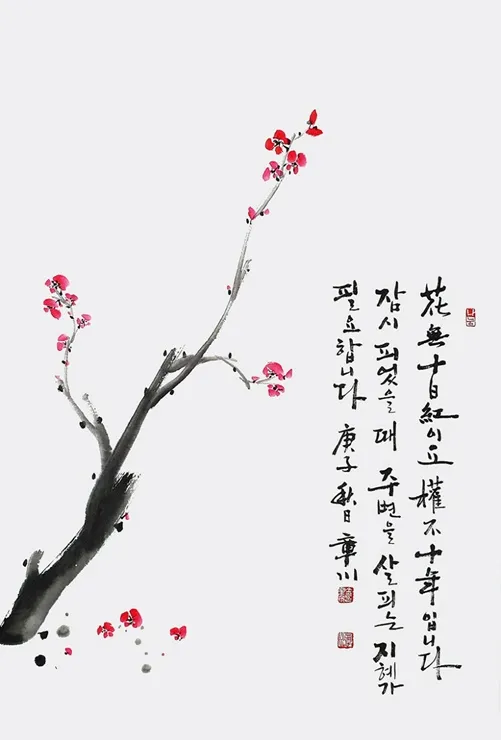 花無十日紅이요 權不十年입니다
잠시 피었을 때 주변을 살피는 지혜가
필요합니다 庚子 秋日 章川